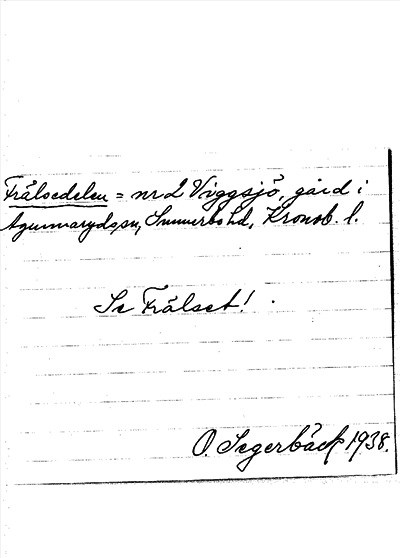 Frälsedelen = nr 2 Viggsjö, gård i
Agunnaryds sn, Sunnerbo hd, Kronob. l.
Se Frälset!
O. Segerbäck 1938.